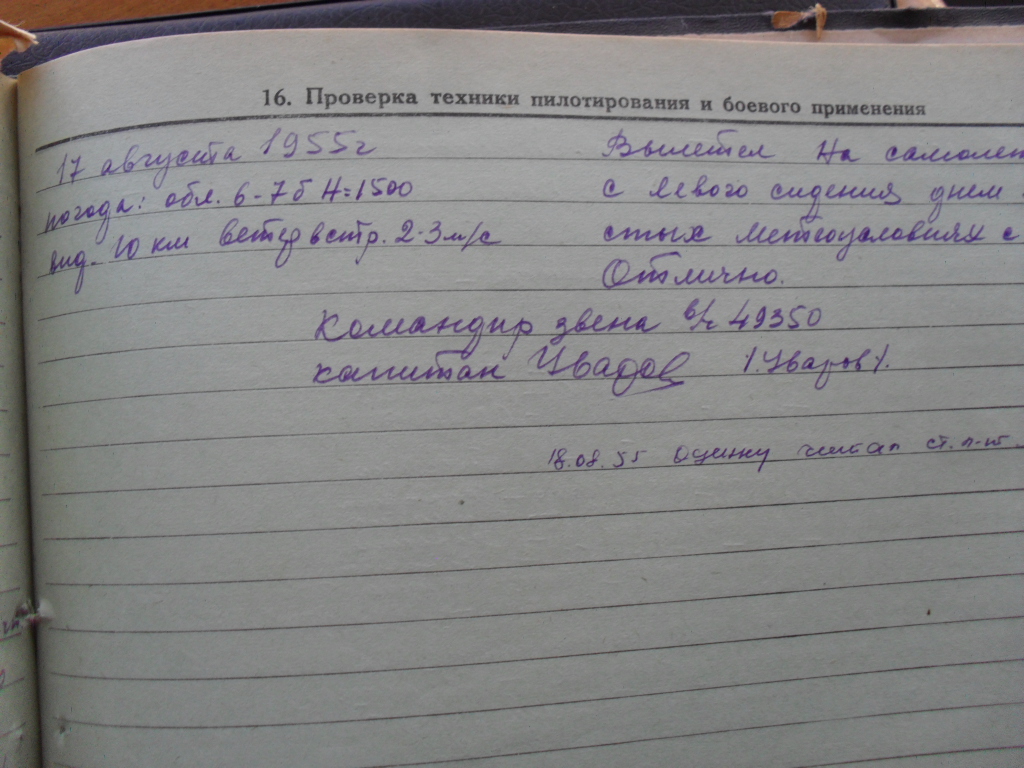 16. Проверка техники пилотирования и боевого применения
17 августа 1955г Вылетел на самолет
погода: обл. 6-7б H=1500 с левого сидения днем
вид. 10 км ветер встр. 2-3м/с стых метеоусловиях с
Отлично.
Командир звена в/ч 49350
капитан Уваров /.Уваров/.
18.08.55 Оценку читал ст. л-т